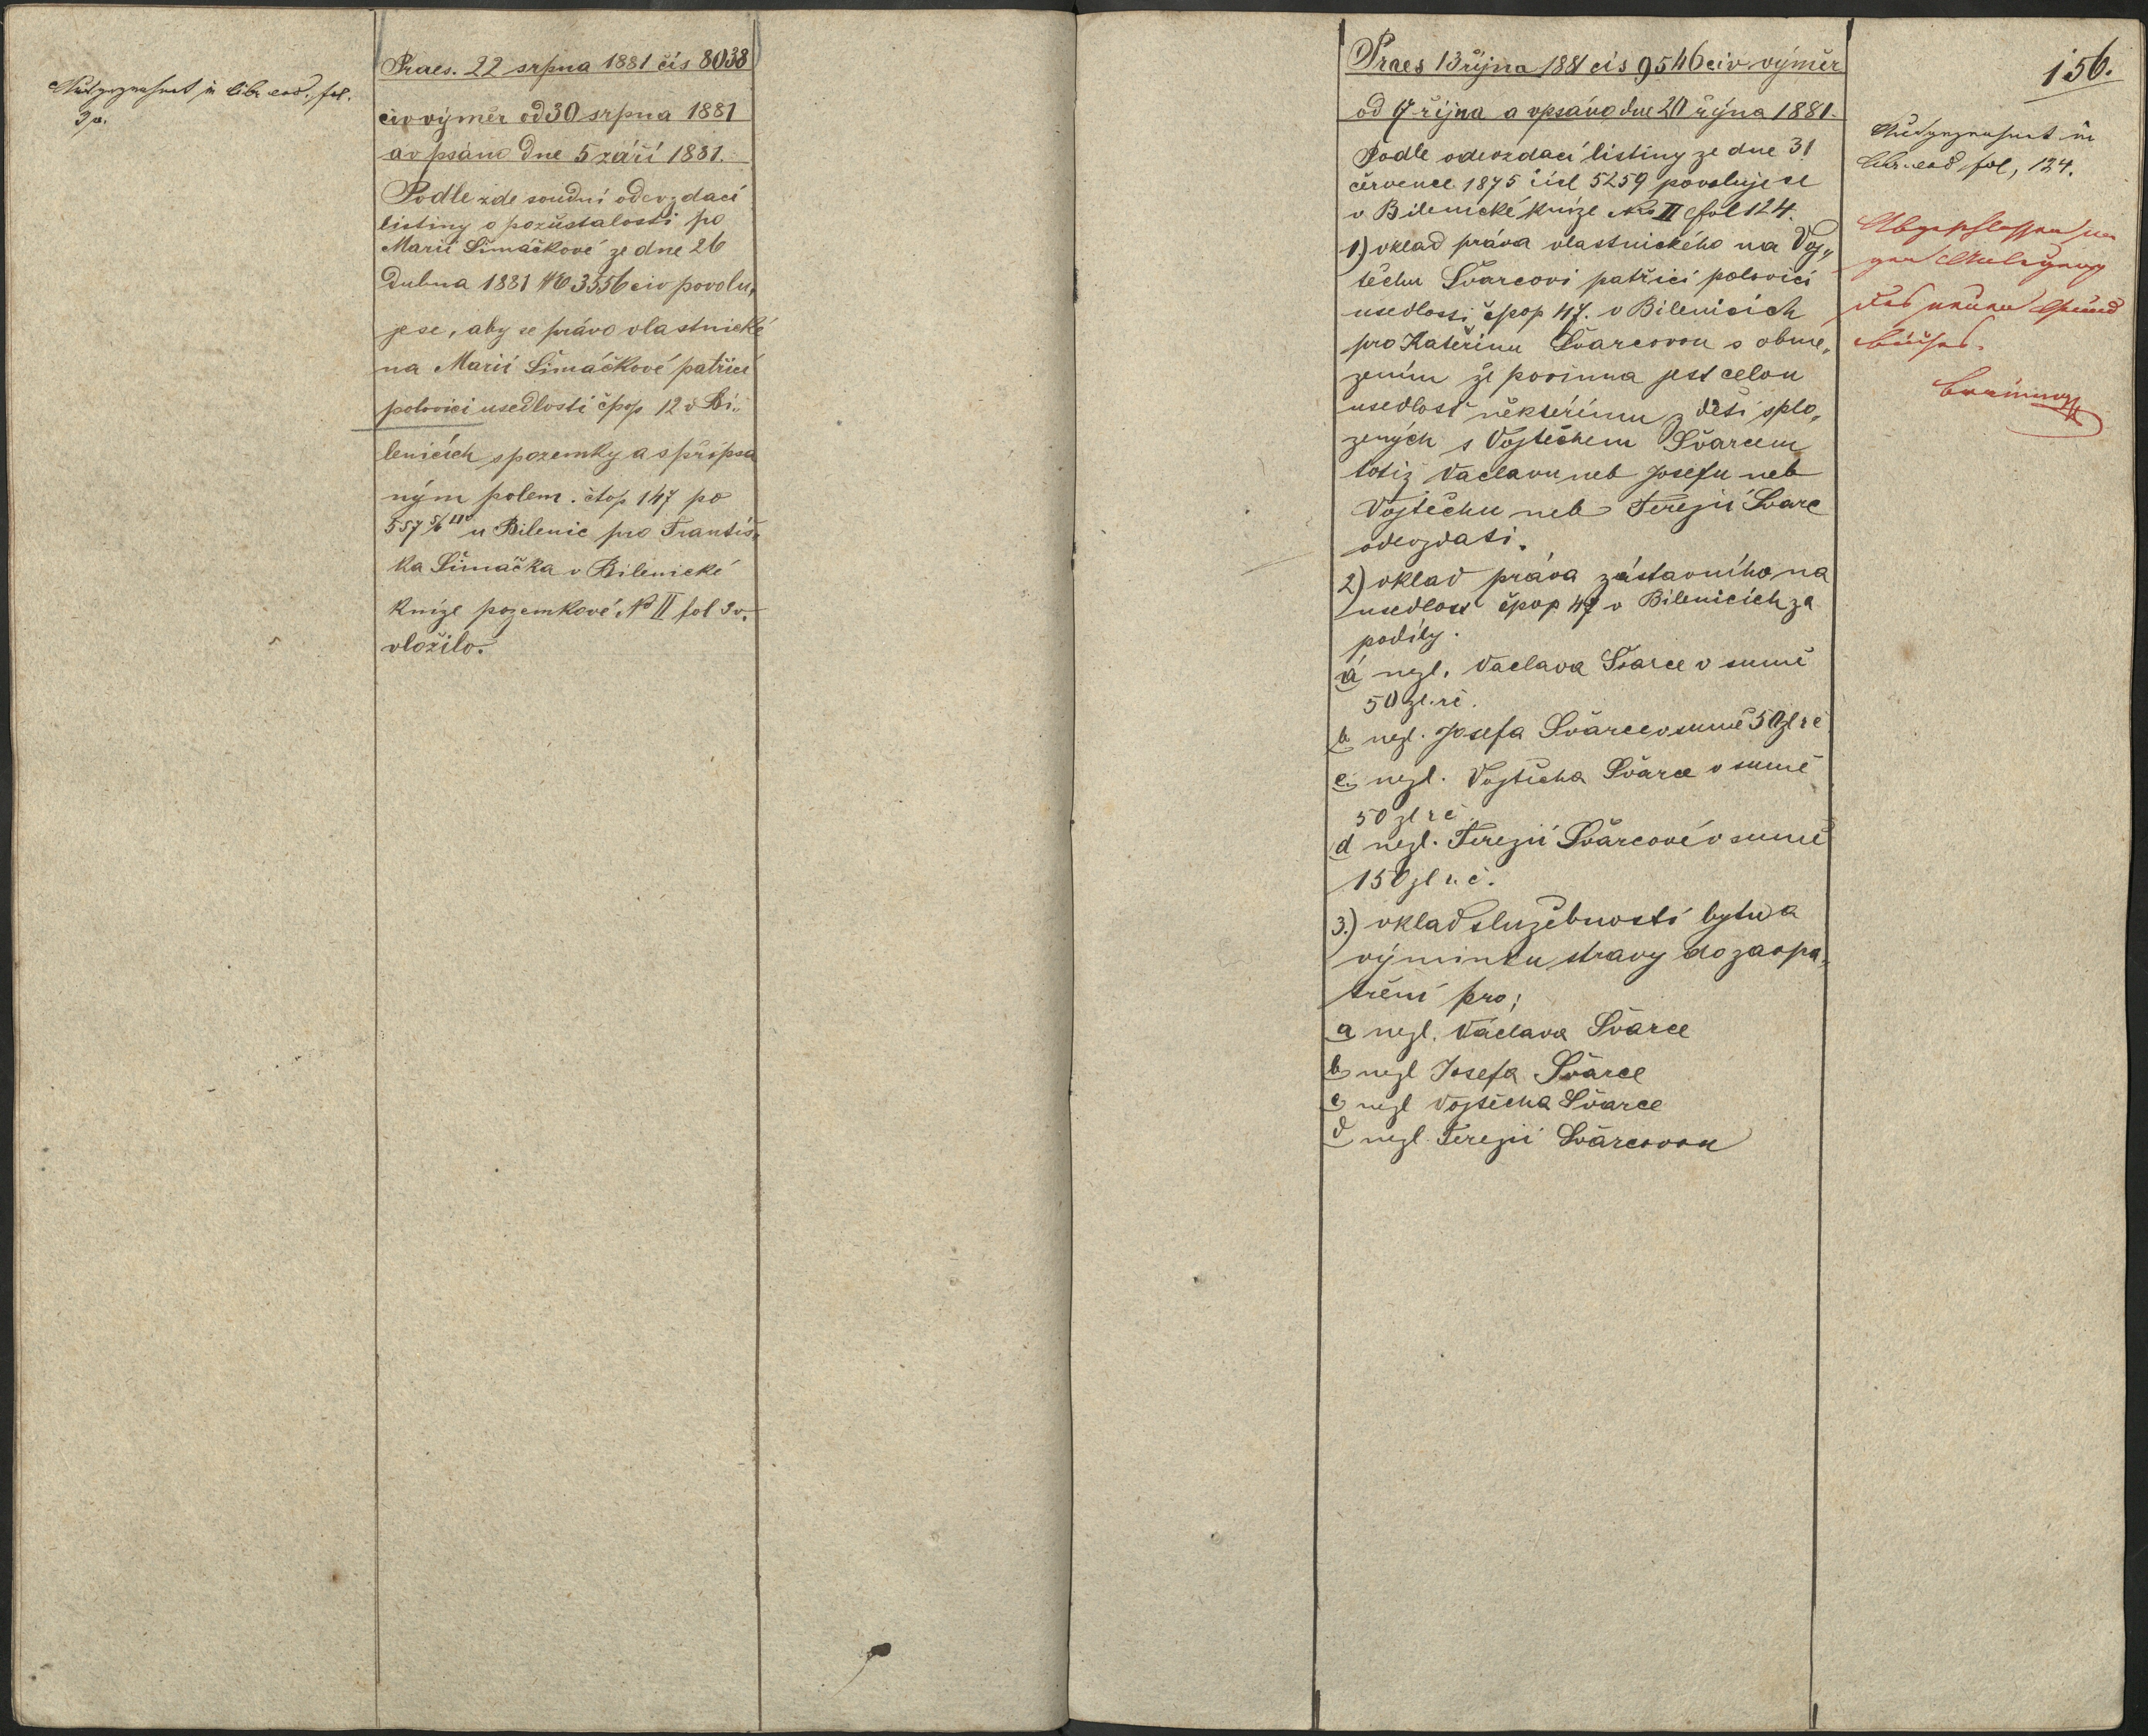 Ausgezeichnet in libr. eod. fol.
3v.
Praes. 22 srpna 1881 čís 8038
civ výměr od 30 srpna 1881
a vpsáno dne 5 září 1881.
Podle zde soudní odevzdací
listiny o pozůstalosti po
Marii Šimáčkové ze dne 26
dubna 1881 No 3556 civ povolu„
je se, aby se právo vlastnické
na Marii Šimáčkové patřící
polovici usedlosti čpop. 12 v Bi„
lenicích s pozemky a s připsa
ným polem čtop 147 po
557 5/6 □° u Bilenic pro Františ„
ka Šimáčka v Bilenické
knize pozemkové No II fol 3v.
vložilo.
156.
Praes 13 října 1881 čís 9546 civ výměr
od 17 října a vpsáno dne 20 října 1881.
Podle odevzdací listiny ze dne 31
července 1875 čísl 5259 povoluje se
v Bilenické knize No II fol 124.
1.) vklad práva vlastnického na Voj„
těchu Švarcovi patřící polovici
usedlosti čpop 47. v Bilenicích
pro Kateřinu Švarcovou s obme„
zením že povinna jest celou
usedlost některému z dětí splo„
zených s Vojtěchem Švarcem
totiž Václavu neb Josefu neb
Vojtěchu neb Terezii Švarc
odevzdati.
2) vklad práva zástavního na
usedlost čpop 47 v Bilenicích za
podíly.
a nezl. Václava Švarce v sumě
50 zl. rč.
b nezl. Josefa Švarce v sumě 50 zl rč
c nezl. Vojtěcha Švarce v sumě
50 zl rč
d nezl. Terezii Švarcové v sumě
150 zl r. č.
3.) vklad služebnosti bytu a
výminku stravy do zaopa„
tření pro;
a nezl. Václava Švarce
b nezl Josefa Švarce
c nezl Vojtěcha Švarce
d nezl. Terezii Švarcovou
Ausgezeichnet in
libr. eod fol, 124.
Abgeschlossen we
gen Anlegung
des neuen Grund
buches.